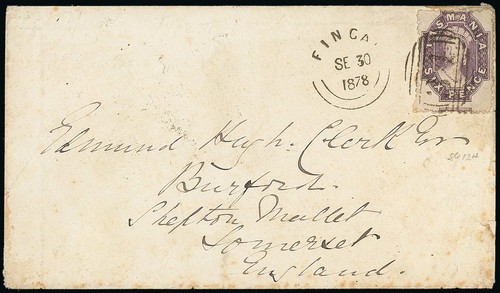 FINGA
SE 30
1878
TASMANIA
SIX PENCE
Edmund Hugh Clerk Esr
Burford
Shepton Mallet
Somerset
England.